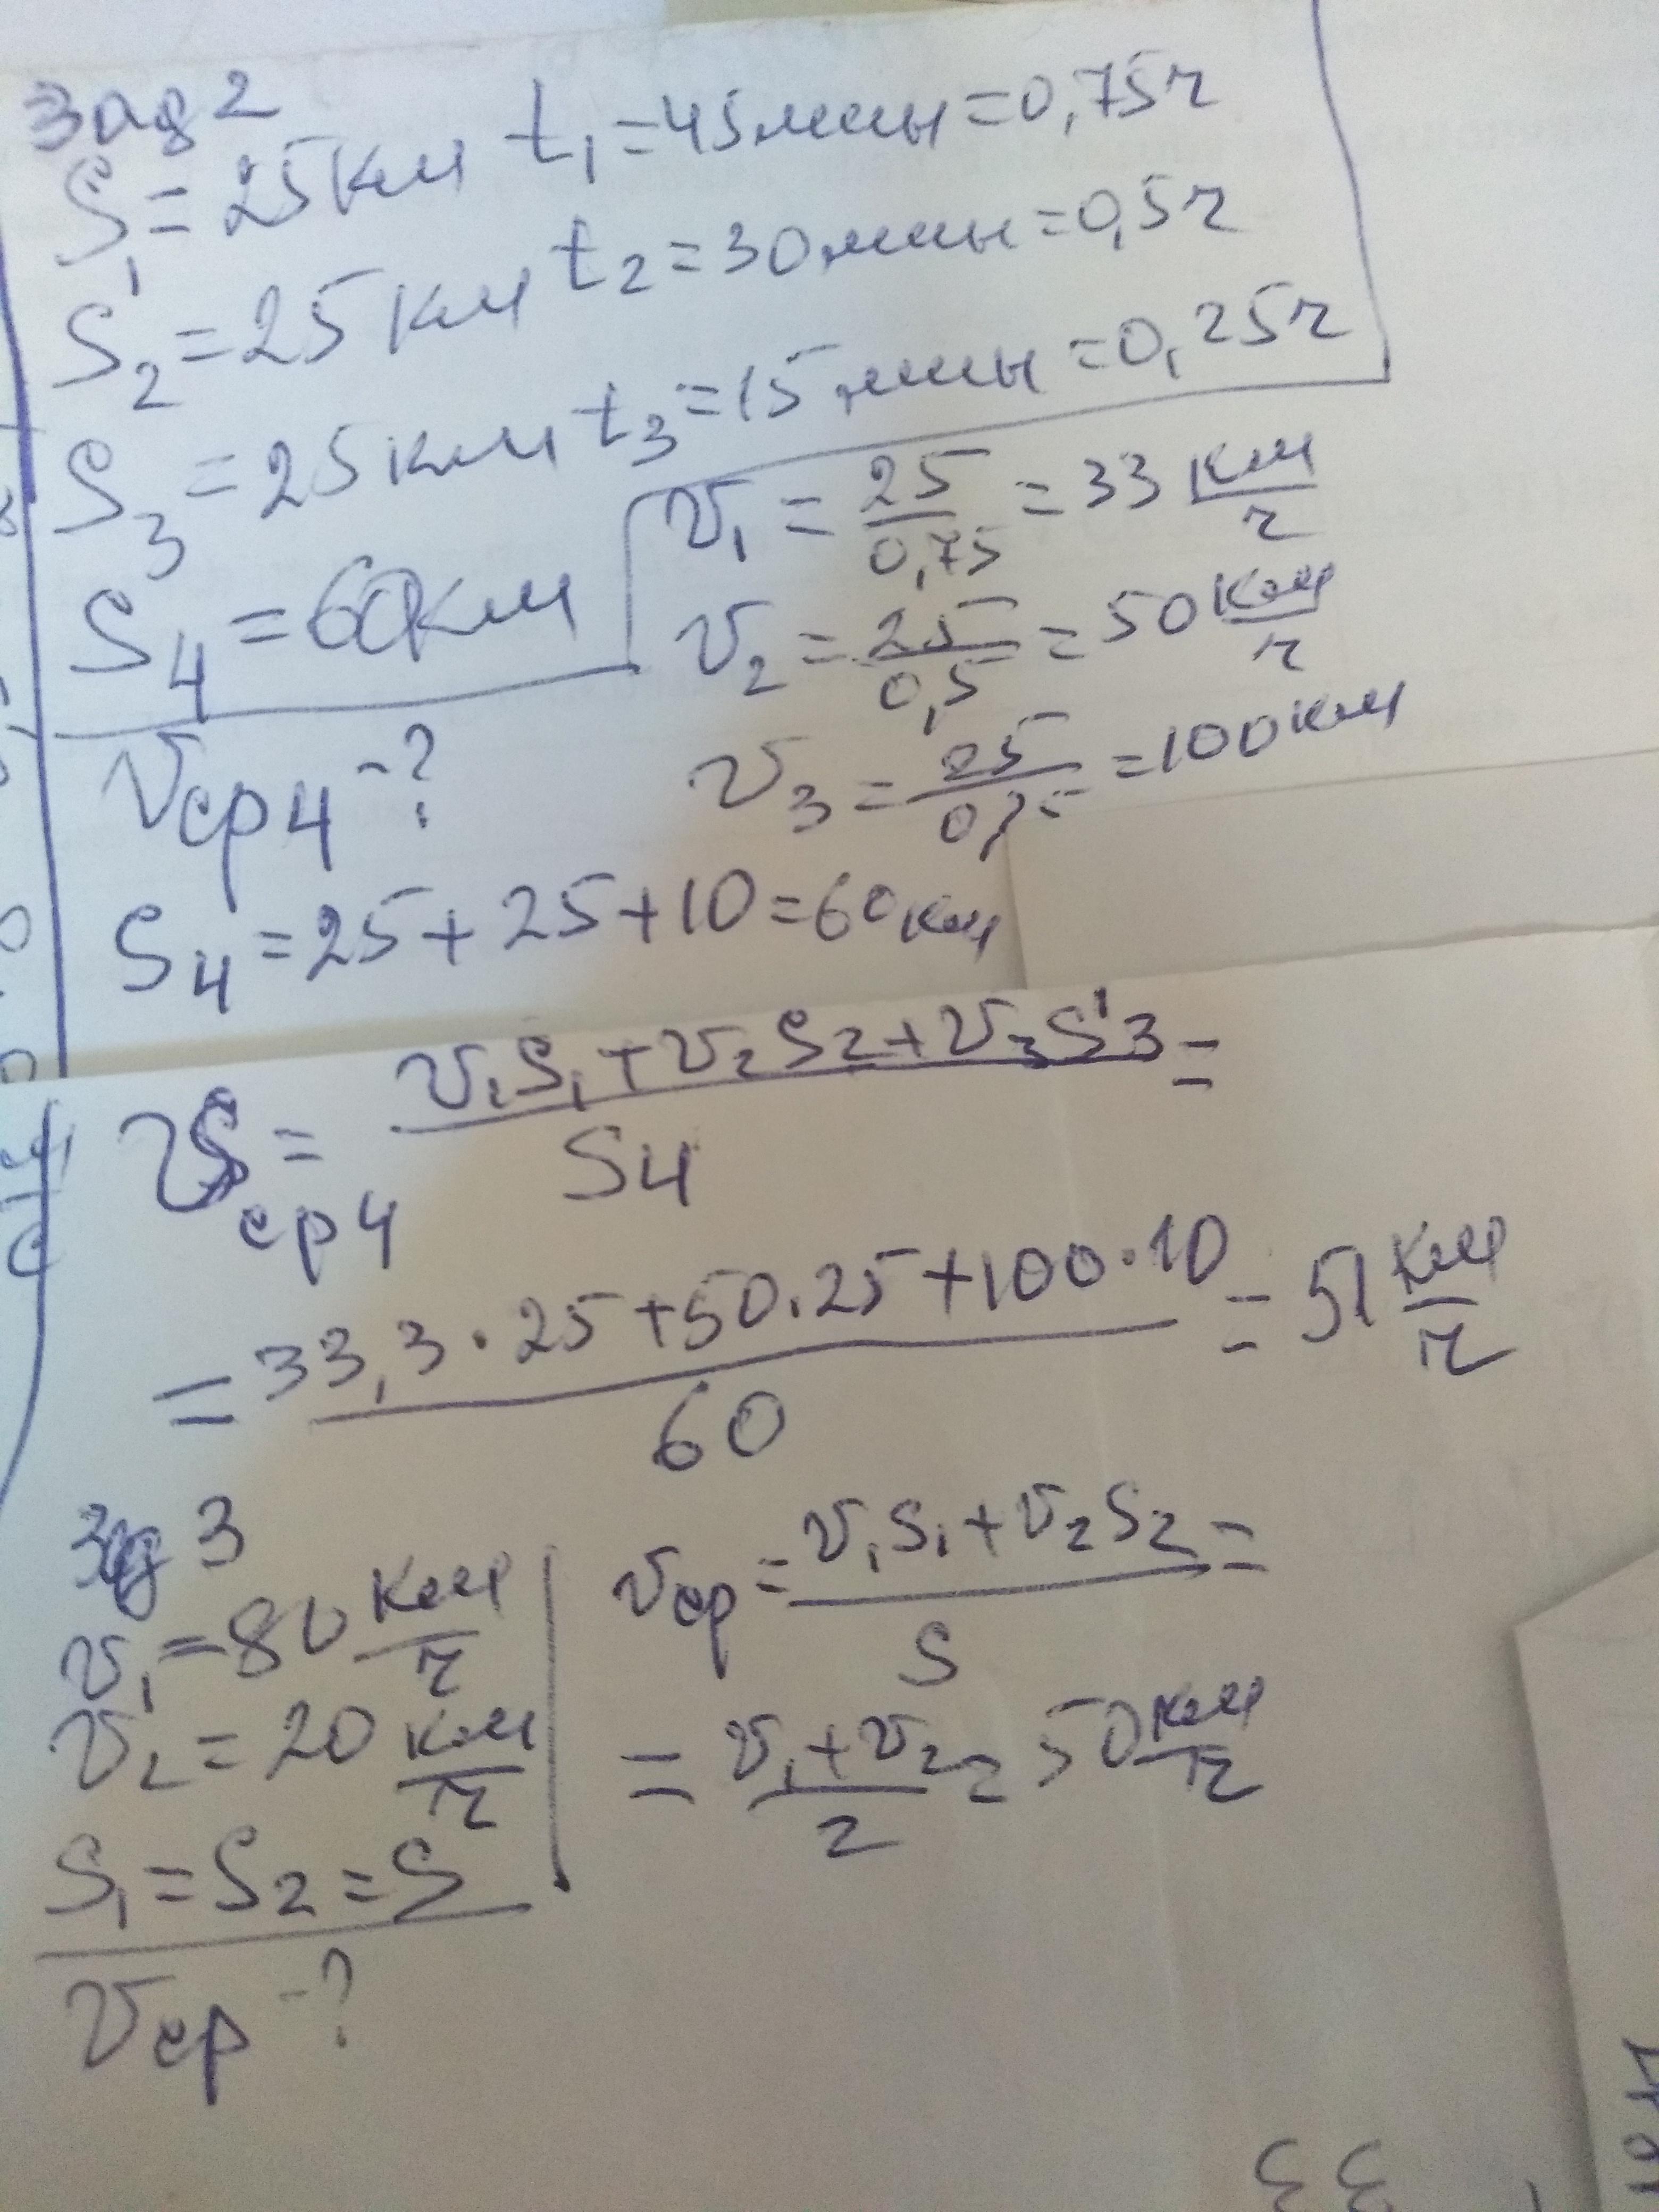 Зад 2
S₁ = 25 км t₁ = 45 мин = 0,75 ч
S₂ = 25 км t₂ = 30 мин = 0,5 ч
S₃ = 25 км t₃ = 15 мин = 0,25 ч
S₄ = 60 км
v₁ = 25/0,75 = 33 км/ч
v₂ = 25/0,5 = 50 км/ч
vср4 - ?
v₃ = 25/0,25 = 100 км
S₄ = 25 + 25 + 10 = 60 км
vср4 = (v₁S₁ + v₂S₂ + v₃S'3)/S4 =
= (33,3 · 25 + 50 · 25 + 100 · 10)/60 = 51 км/ч
Зад 3
v₁ = 80 км/ч
v₂ = 20 км/ч
S₁ = S₂ = S
vср - ?
vср = (v₁S₁ + v₂S₂)/S =
= (v₁ + v₂)/2 = 50 км/ч